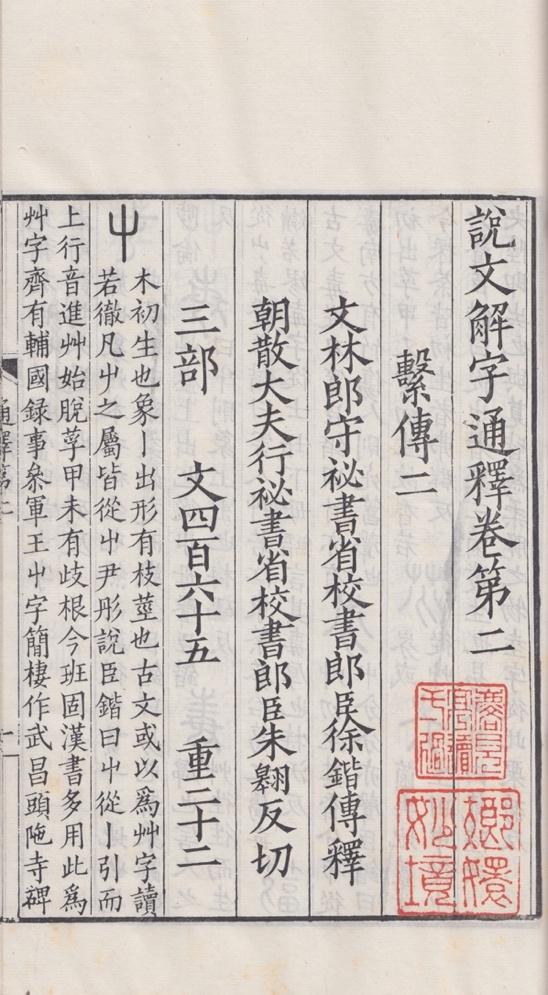 說文解字通釋卷第二
繫傳二
文林郎守祕書省校書郎臣徐鍇傳釋
朝散大夫行祕書省校書郎臣朱翱反切
三部 文四百六十五 重三十二
屮
木初生也象丨出形有枝莖也古文或以爲艸字讀
若徹凡屮之屬皆從屮尹彤說臣鍇曰屮從丨引而
上行音進艸始脫莩甲未有歧根今班固漢書多用此爲
艸字齊有輔國錄事叅軍王屮字簡棲作武昌頭陁寺碑
通釋第二
一
嫏嬛
妙境